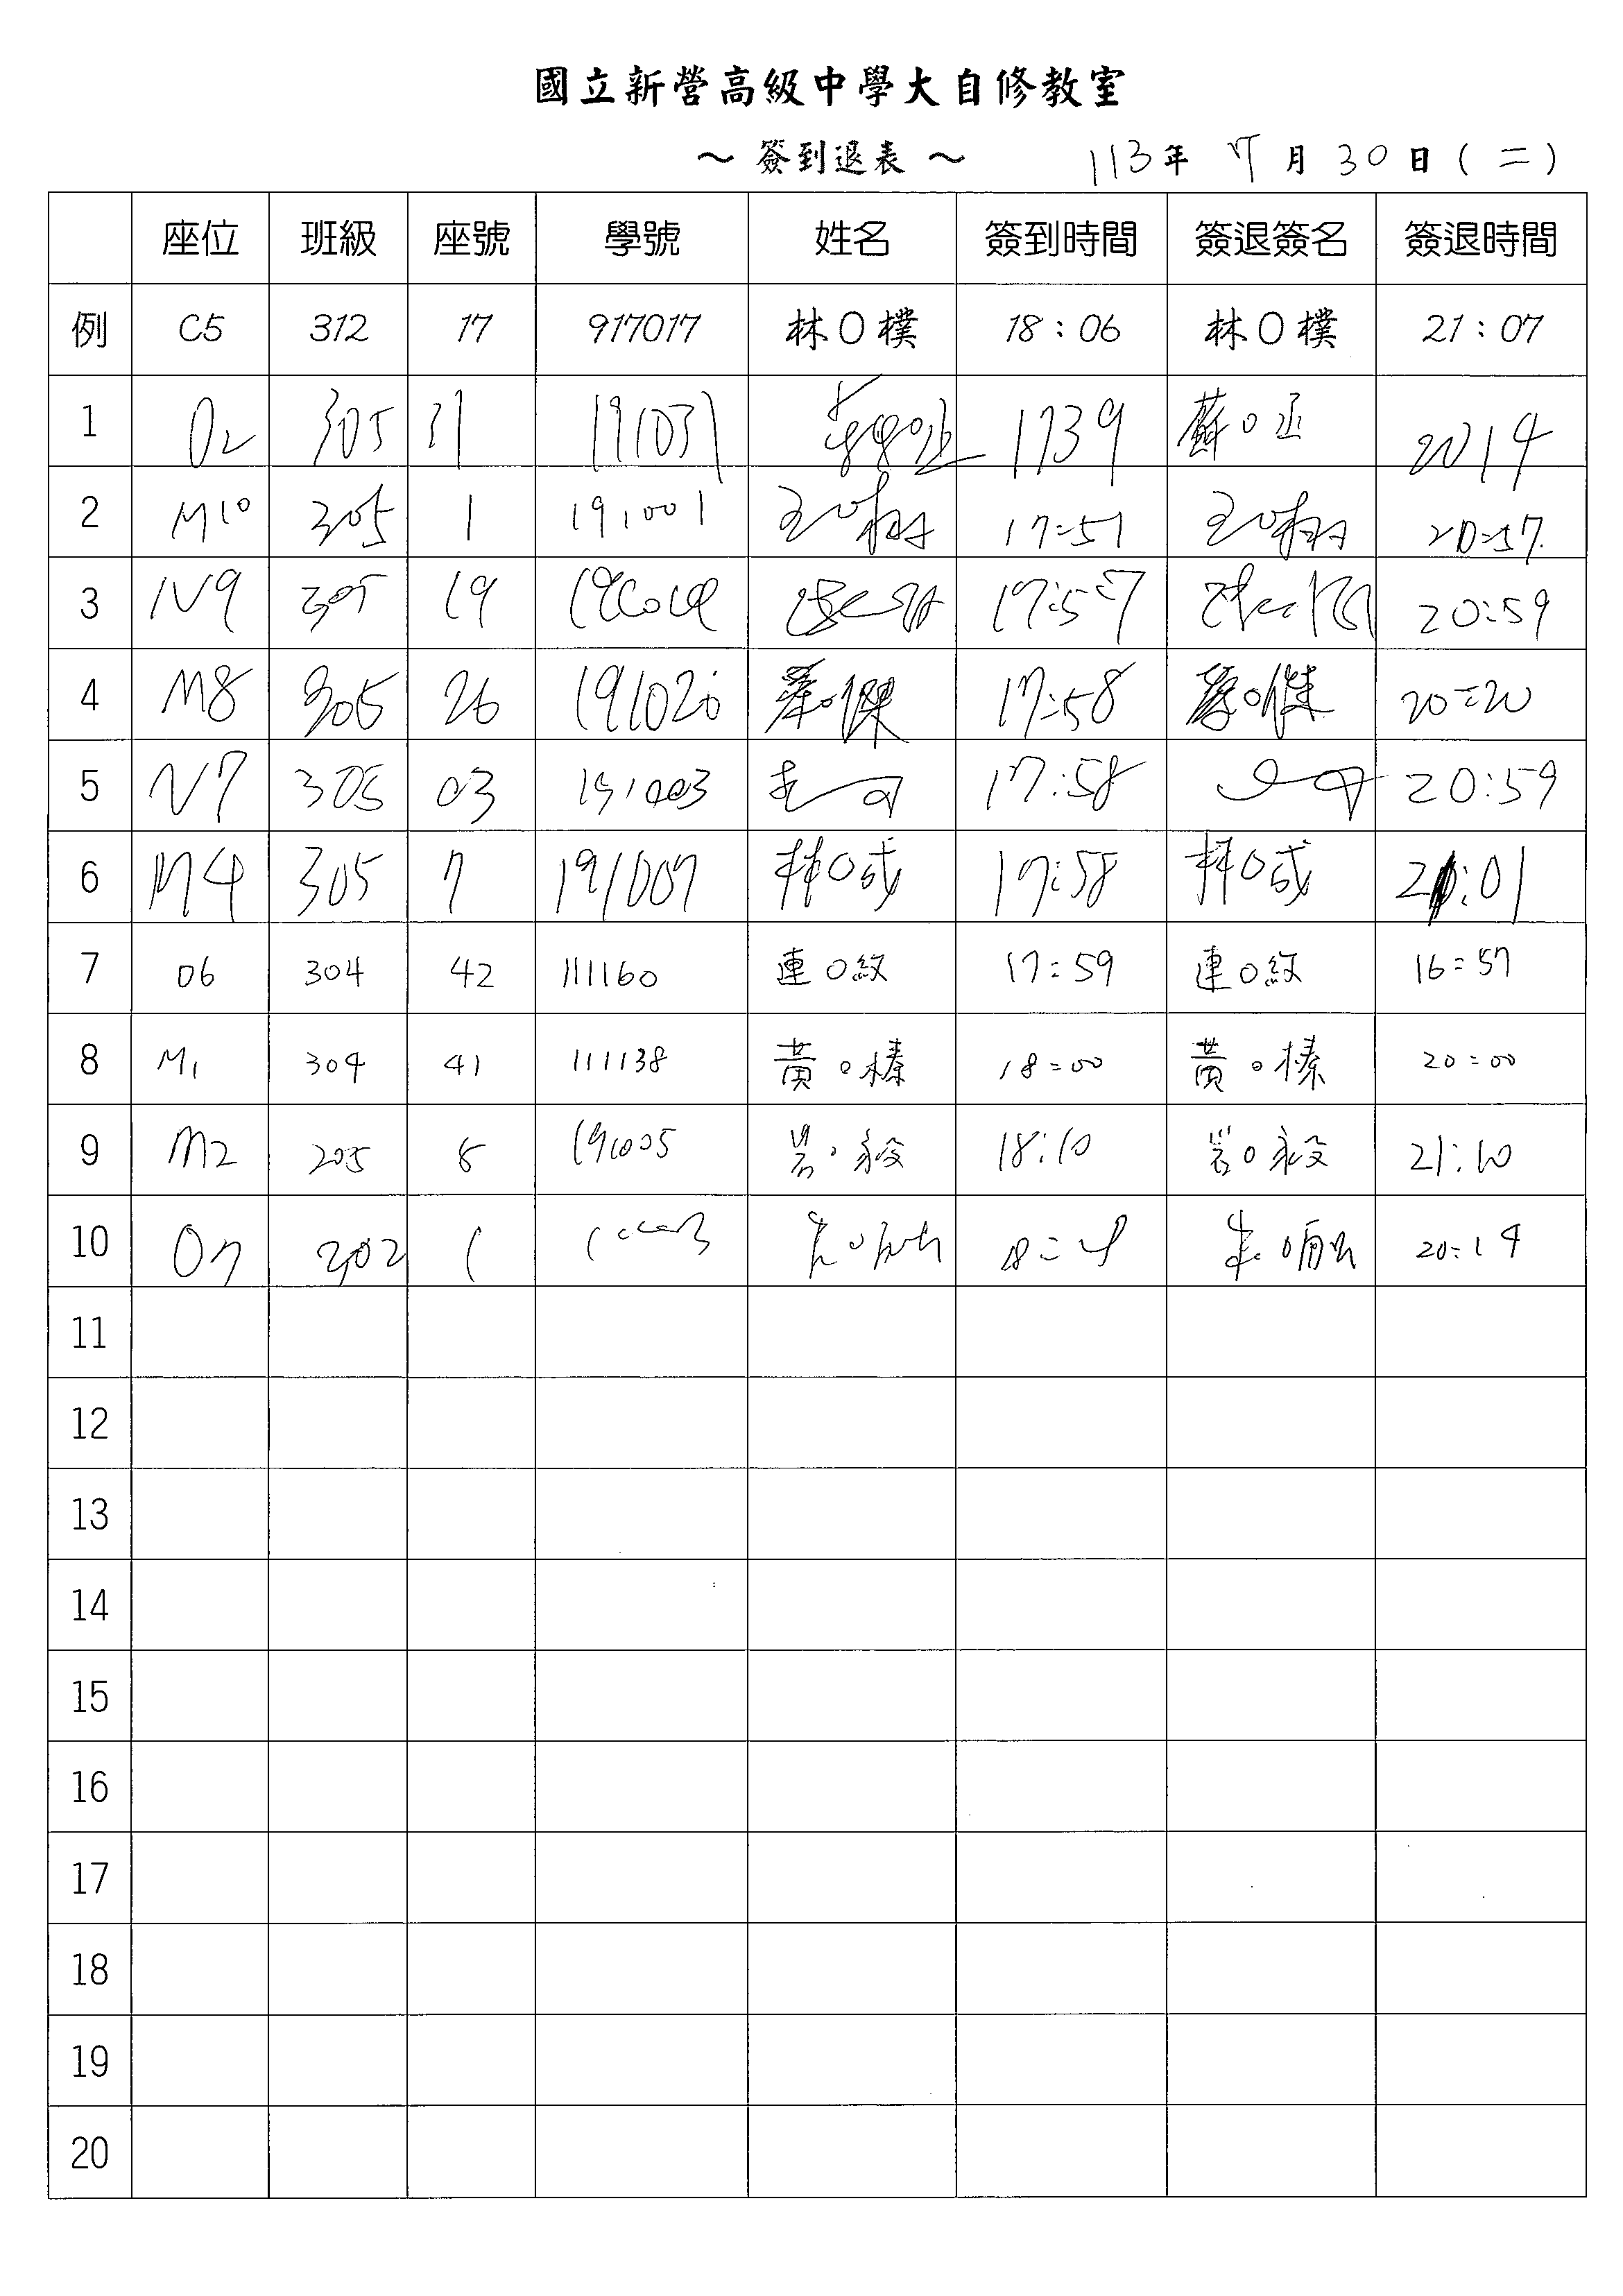 國立新營高級中學大自修教室
～ 簽到退表 ～ 113年 7月 30日 ( 二 )
座位 班級 座號 學號 姓名 簽到時間 簽退簽名 簽退時間
例 C5 312 17 917017 林O樸 18:06 林O樸 21:07
1 O2 305 31 191031 1739 蘇O丞 2014
2 M10 305 1 191001 17:57 20:57
3 N9 305 19 17:57 20:59
4 M8 305 26 17:58 20:20
5 N7 305 03 191003 17:58 20:59
6 M4 305 7 191007 林O成 17:58 林O成
7 06 304 42 111160 連O紋 17:59 連O紋 16:57
8 M1 304 41 111138 黃O榛 18:00 黃O榛 20:00
9 M2 205 18:10 21:10
10 O7 202 20:14
11
12
13
14
15
16
17
18
19
20